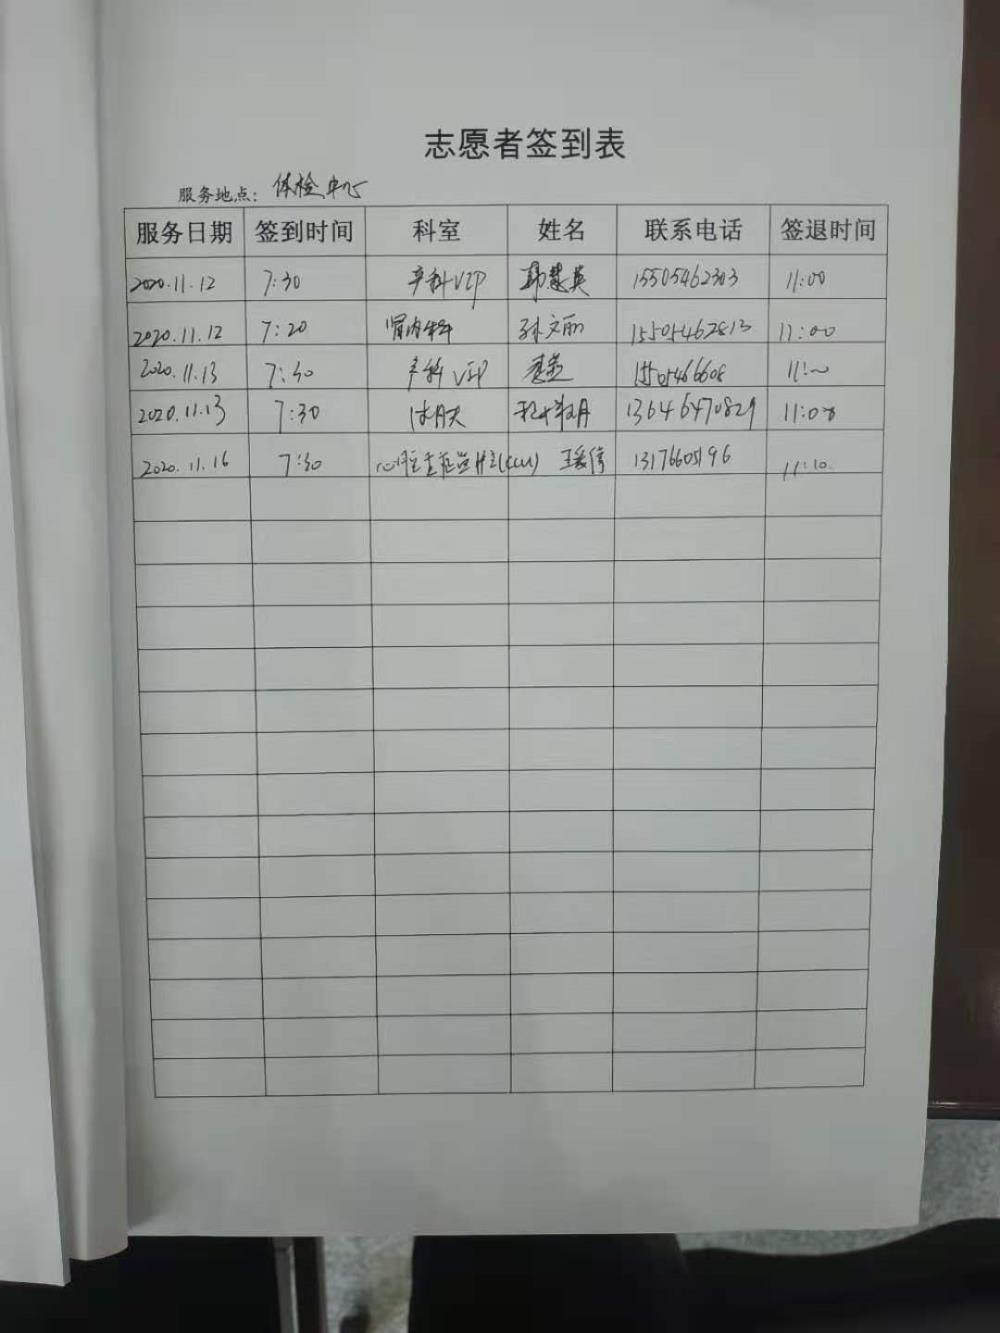 志愿者签到表
服务地点: 体检中心
服务日期 签到时间 科室 姓名 联系电话 签退时间
2020.11.12 7:30 产科VIP 韩慧英 15505462303 11:00
2020.11.12 7:20 肾内科 孙文丽 15505462813 11:00
2020.11.13 7:30 产科VIP 11:00
2020.11.13 7:30 13646470829 11:00
2020.11.16 7:30 心脏重症监护室(CCU) 王爱倩 13176605196 11:10.